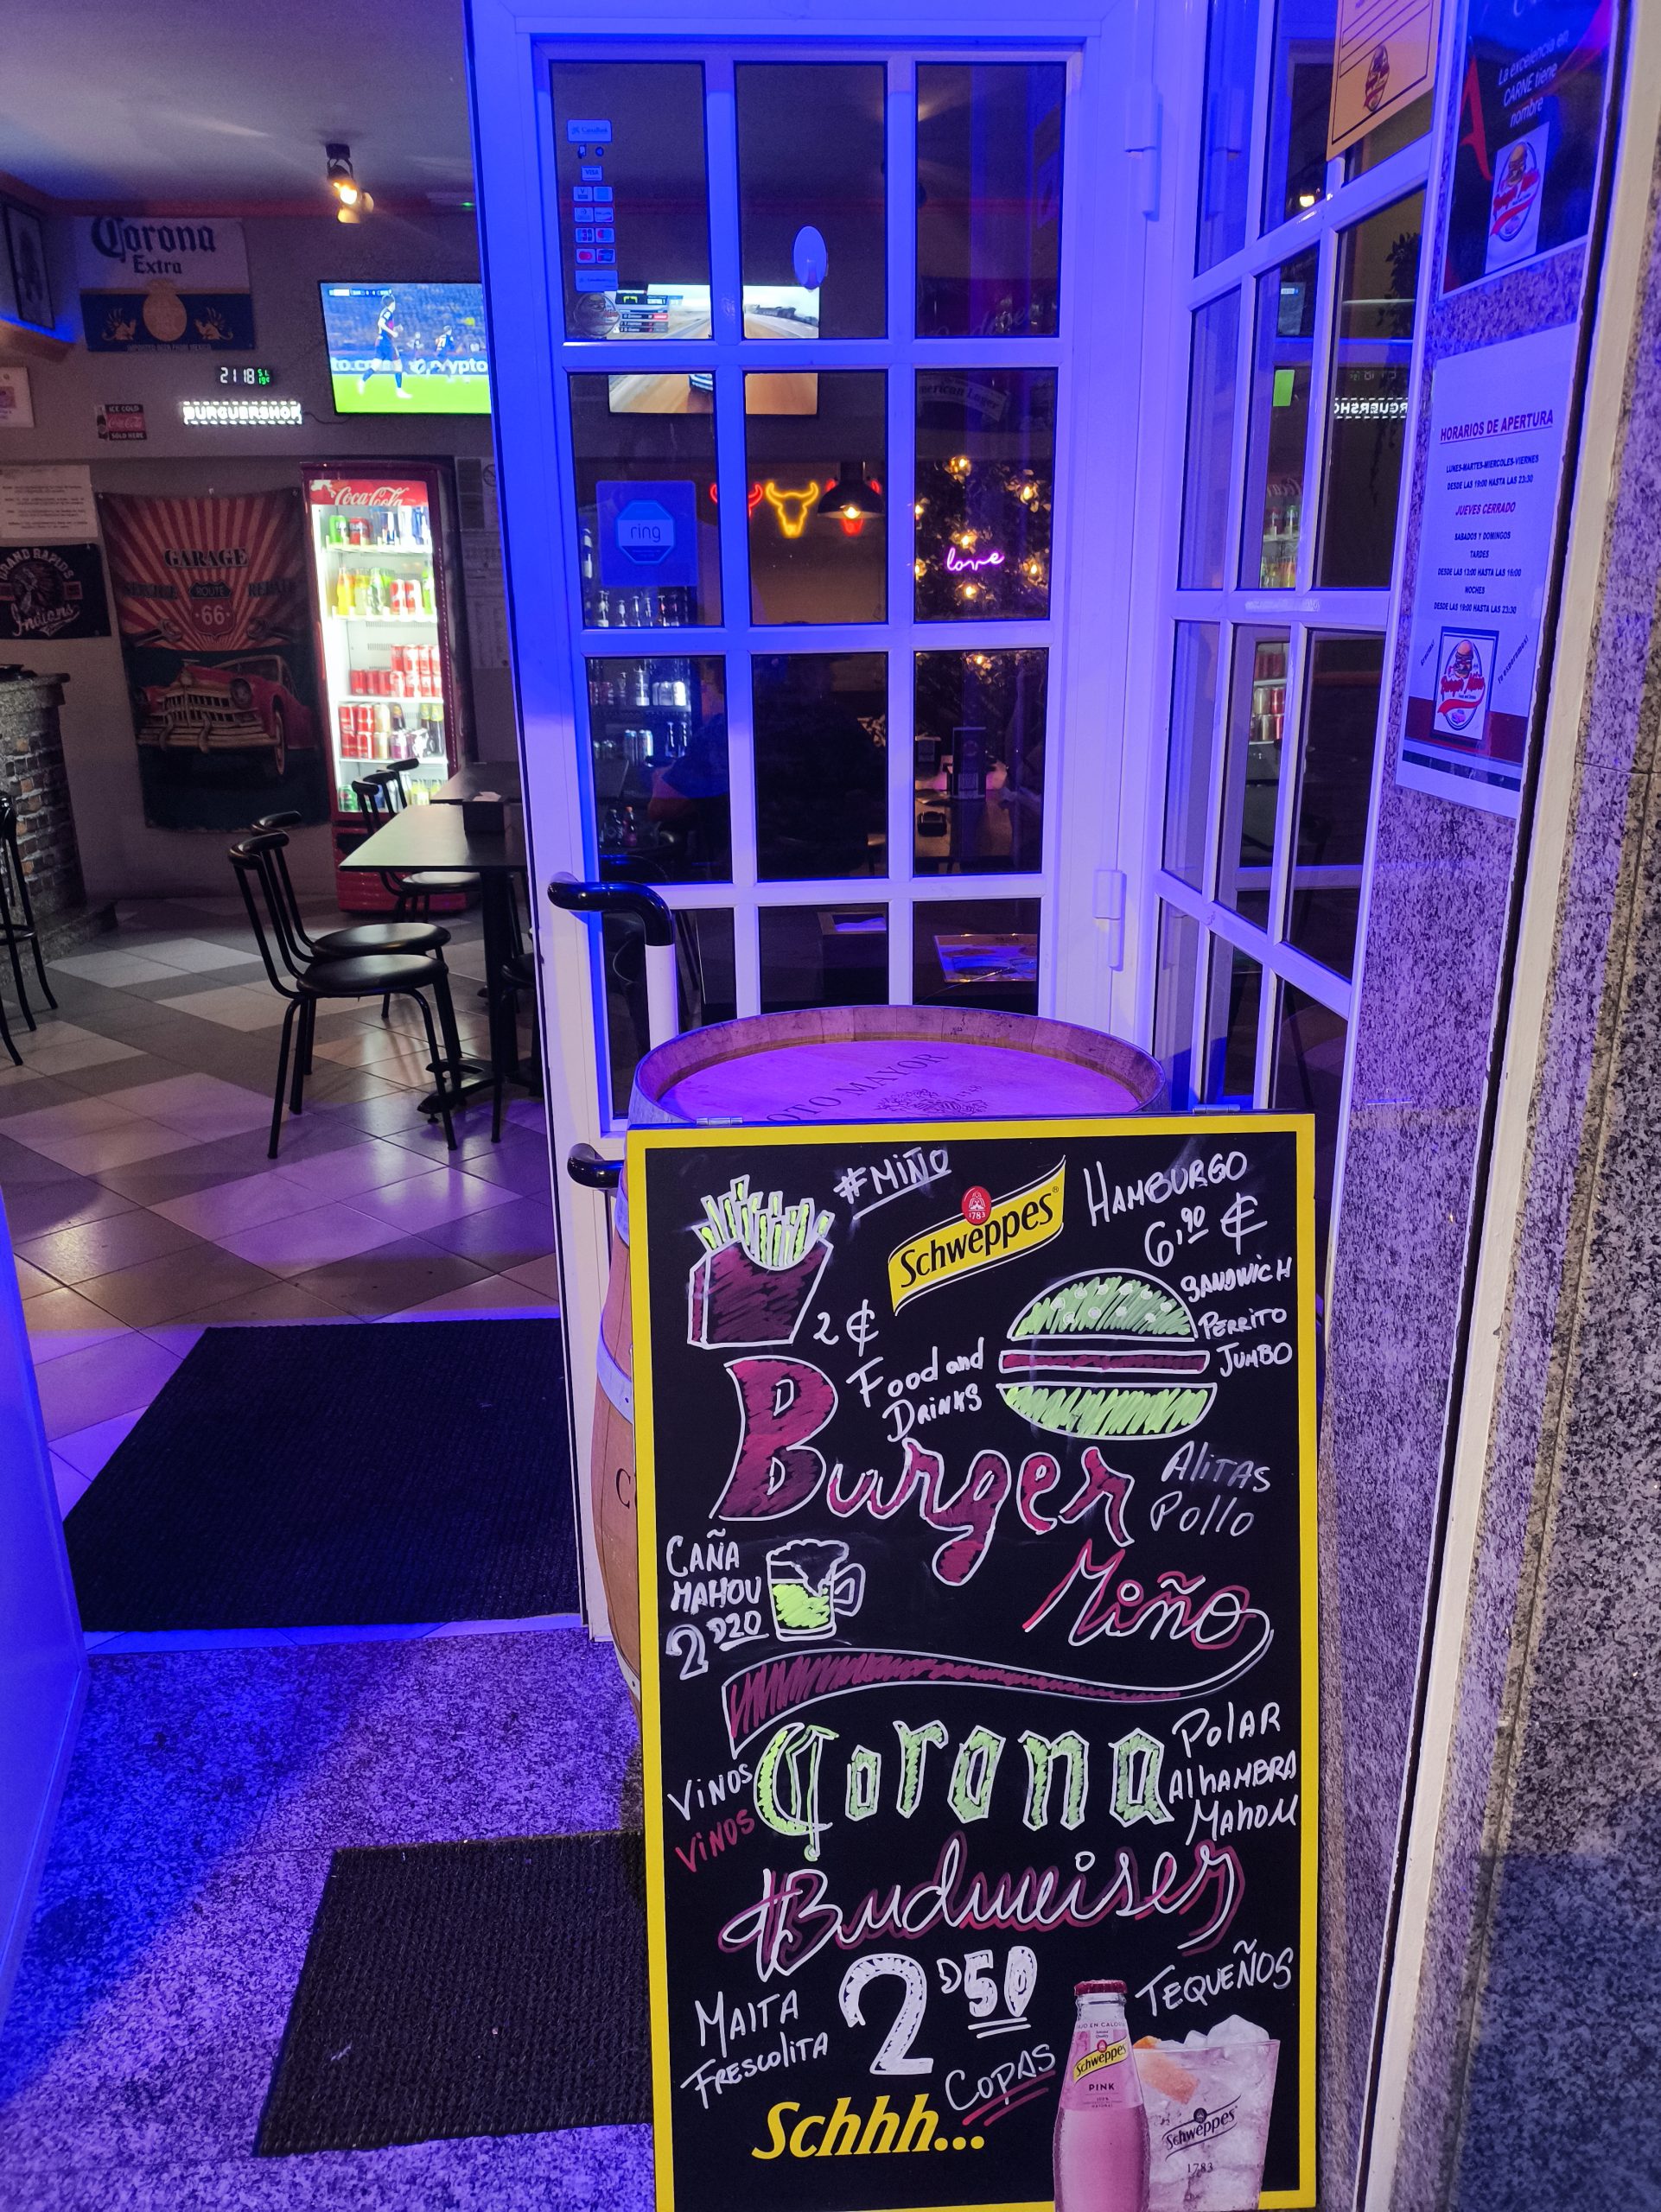 Corona
Extra
21 18
BURGUERSHOP
ICE COLD
Coca-Cola
SOLD HERE
Coca-Cola
GARAGE
ROUTE
66
GRAND RAPIDS
Indians
crypto
CaixaBank
VISA
ring
love
La excelencia en
CARNE tiene
nombre
HORARIOS DE APERTURA
LUNES-MARTES-MIERCOLES-VIERNES
DESDE LAS 19:00 HASTA LAS 23:30
JUEVES CERRADO
SABADOS Y DOMINGOS
TARDES
DESDE LAS 13:00 HASTA LAS 16:00
NOCHES
DESDE LAS 19:00 HASTA LAS 23:30
Te esperamos!
OTO MAYOR
#MIÑO
1783
Schweppes
HAMBURGO
6,90 €
2 €
SANDWICH
PERRITO
JUMBO
Food and
DRINKS
Burger
ALITAS
Pollo
CAÑA
MAHOU
2'20
Miño
VINOS
VINOS
Corona
POLAR
AlhAMBRA
MAHOU
Budweiser
2'50
MALTA
FRESCOLITA
TEQUEÑOS
COPAS
Schhh...
Schweppes
PINK
Schweppes
1783